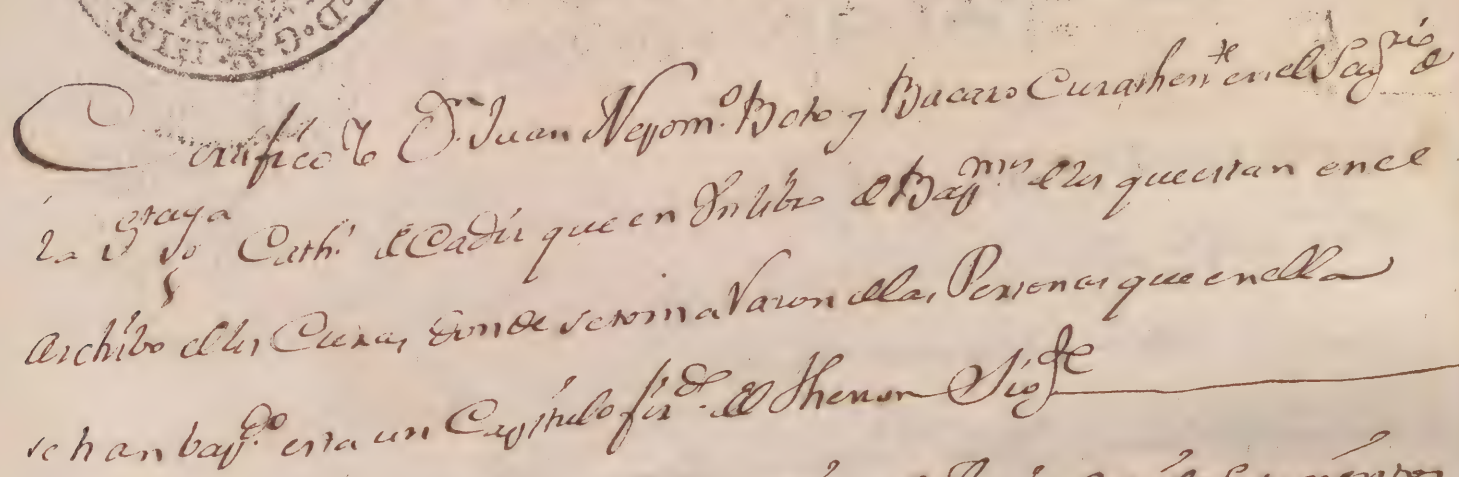 Certifico Yo Dn. Juan Nepomo. Boto y Bacaro Cura thente. en el Sagrio. de
la Sta. Yga. Cathl. de Cadiz que en Un libro de Bapmos. de los que estan en el
Archibo de los Curas, donde se toma Razon de las Personas que en ella
se han bapdo. esta un Capitulo firdo. de el thenor Sigte.